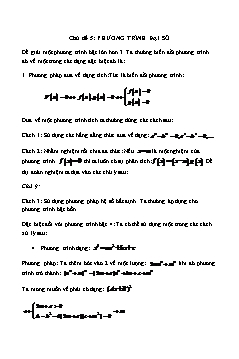 Chủ đề 5: PHƯƠNG TRÌNH ĐẠI SỐ
Để giải một phương trình bậc lớn hơn 3. Ta thường biến đổi phương trình
đó về một trong các dạng đặc biệt đó là:
1. Phương pháp đưa về dạng tích: Tức là biến đổi phương trình:
Đưa về một phương trình tích ta thường dùng các cách sau:
Cách 1: Sử dụng các hằng đẳng thức đưa về dạng:
Cách 2: Nhẩm nghiệm rồi chia đa thức: Nếu x=a là một nghiệm của
phương trình f(x)=0 thì ta luôn có sự phân tích: Để
dự đoán nghiệm ta dựa vào các chú ý sau:
Chú ý:
Cách 3: Sử dụng phương pháp hệ số bất định. Ta thường áp dụng cho
phương trình bậc bốn.
Đặc biệt đối với phương trình bậc 4: Ta có thể sử dụng một trong các cách
xử lý sau:
• Phương trình dạng:
Phương pháp: Ta thêm bớt vào 2 vế một lượng: khi đó phương
trình trở thành:
Ta mong muốn vế phải có dạng: